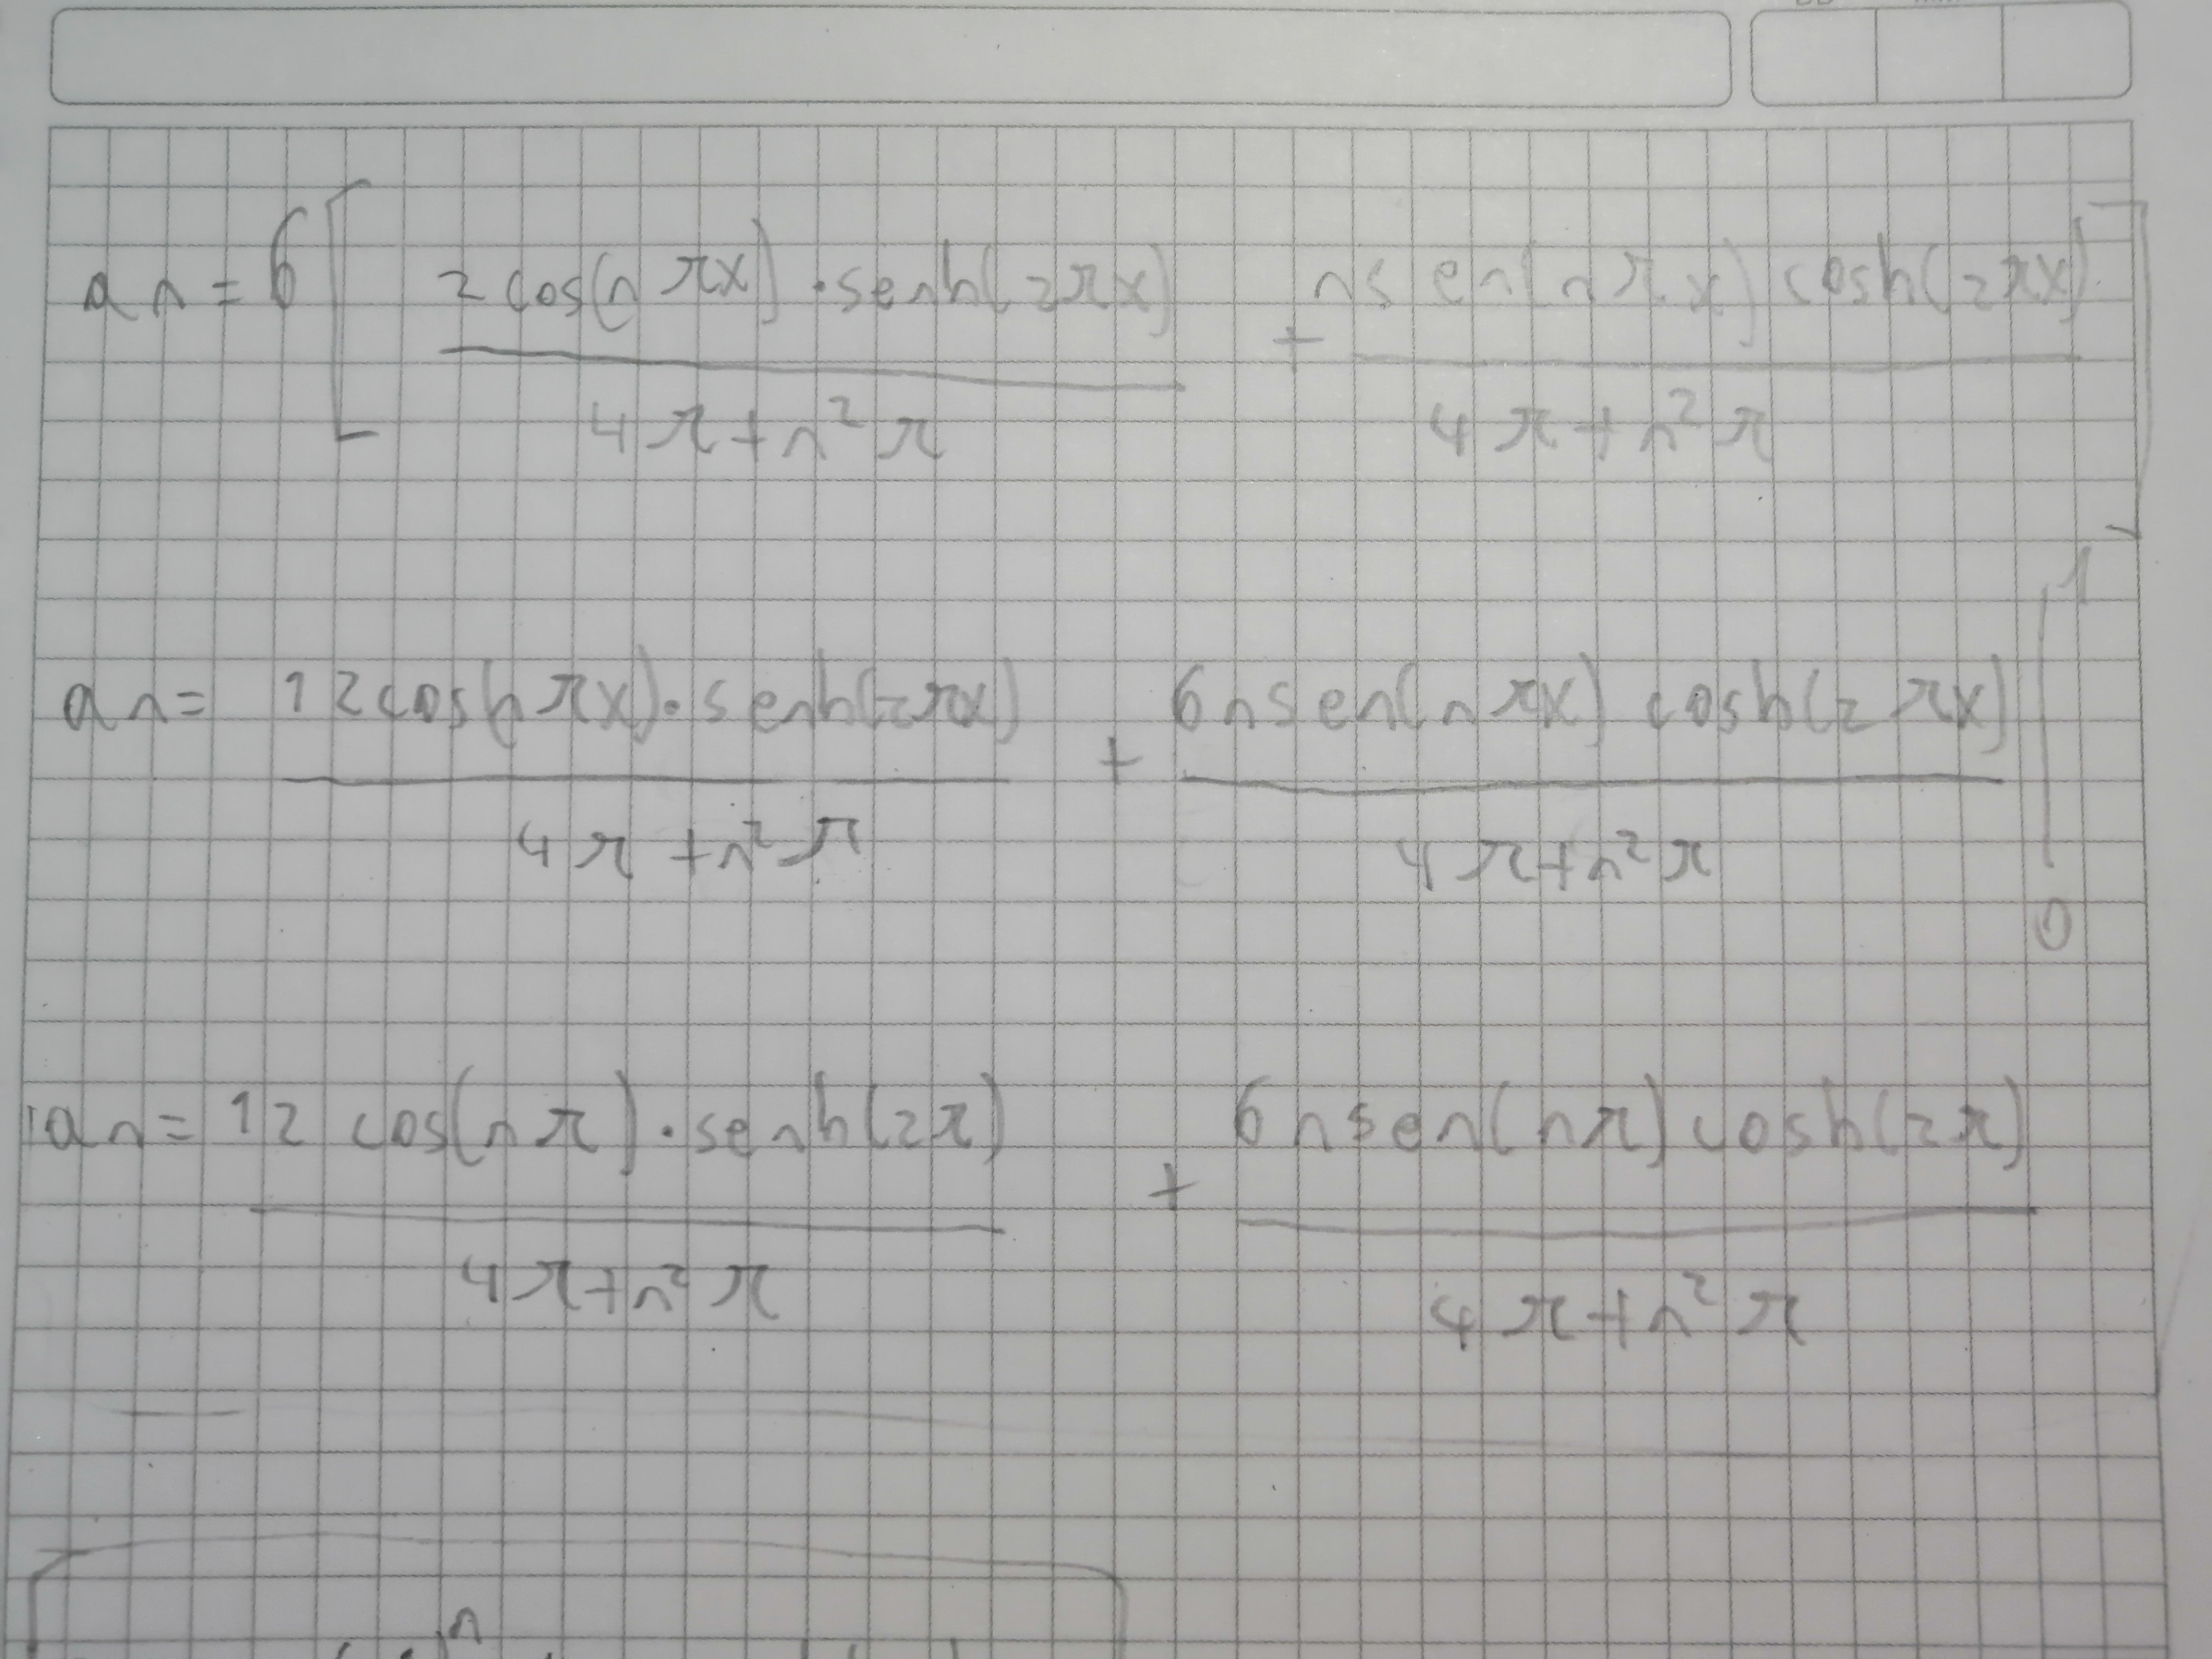 an = 6 [ 2 cos(n πx) · senh(2πx) / 4π + n² π + n sen(n πx) cosh(2πx) / 4π + n² π ]
an = 12 cos(n πx) · senh(2πx) / 4π + n² π + 6n sen(n πx) cosh(2πx) / 4π + n² π | 1 0
an = 12 cos(n π) · senh(2π) / 4π + n² π + 6n sen(nπ) cosh(2π) / 4π + n² π